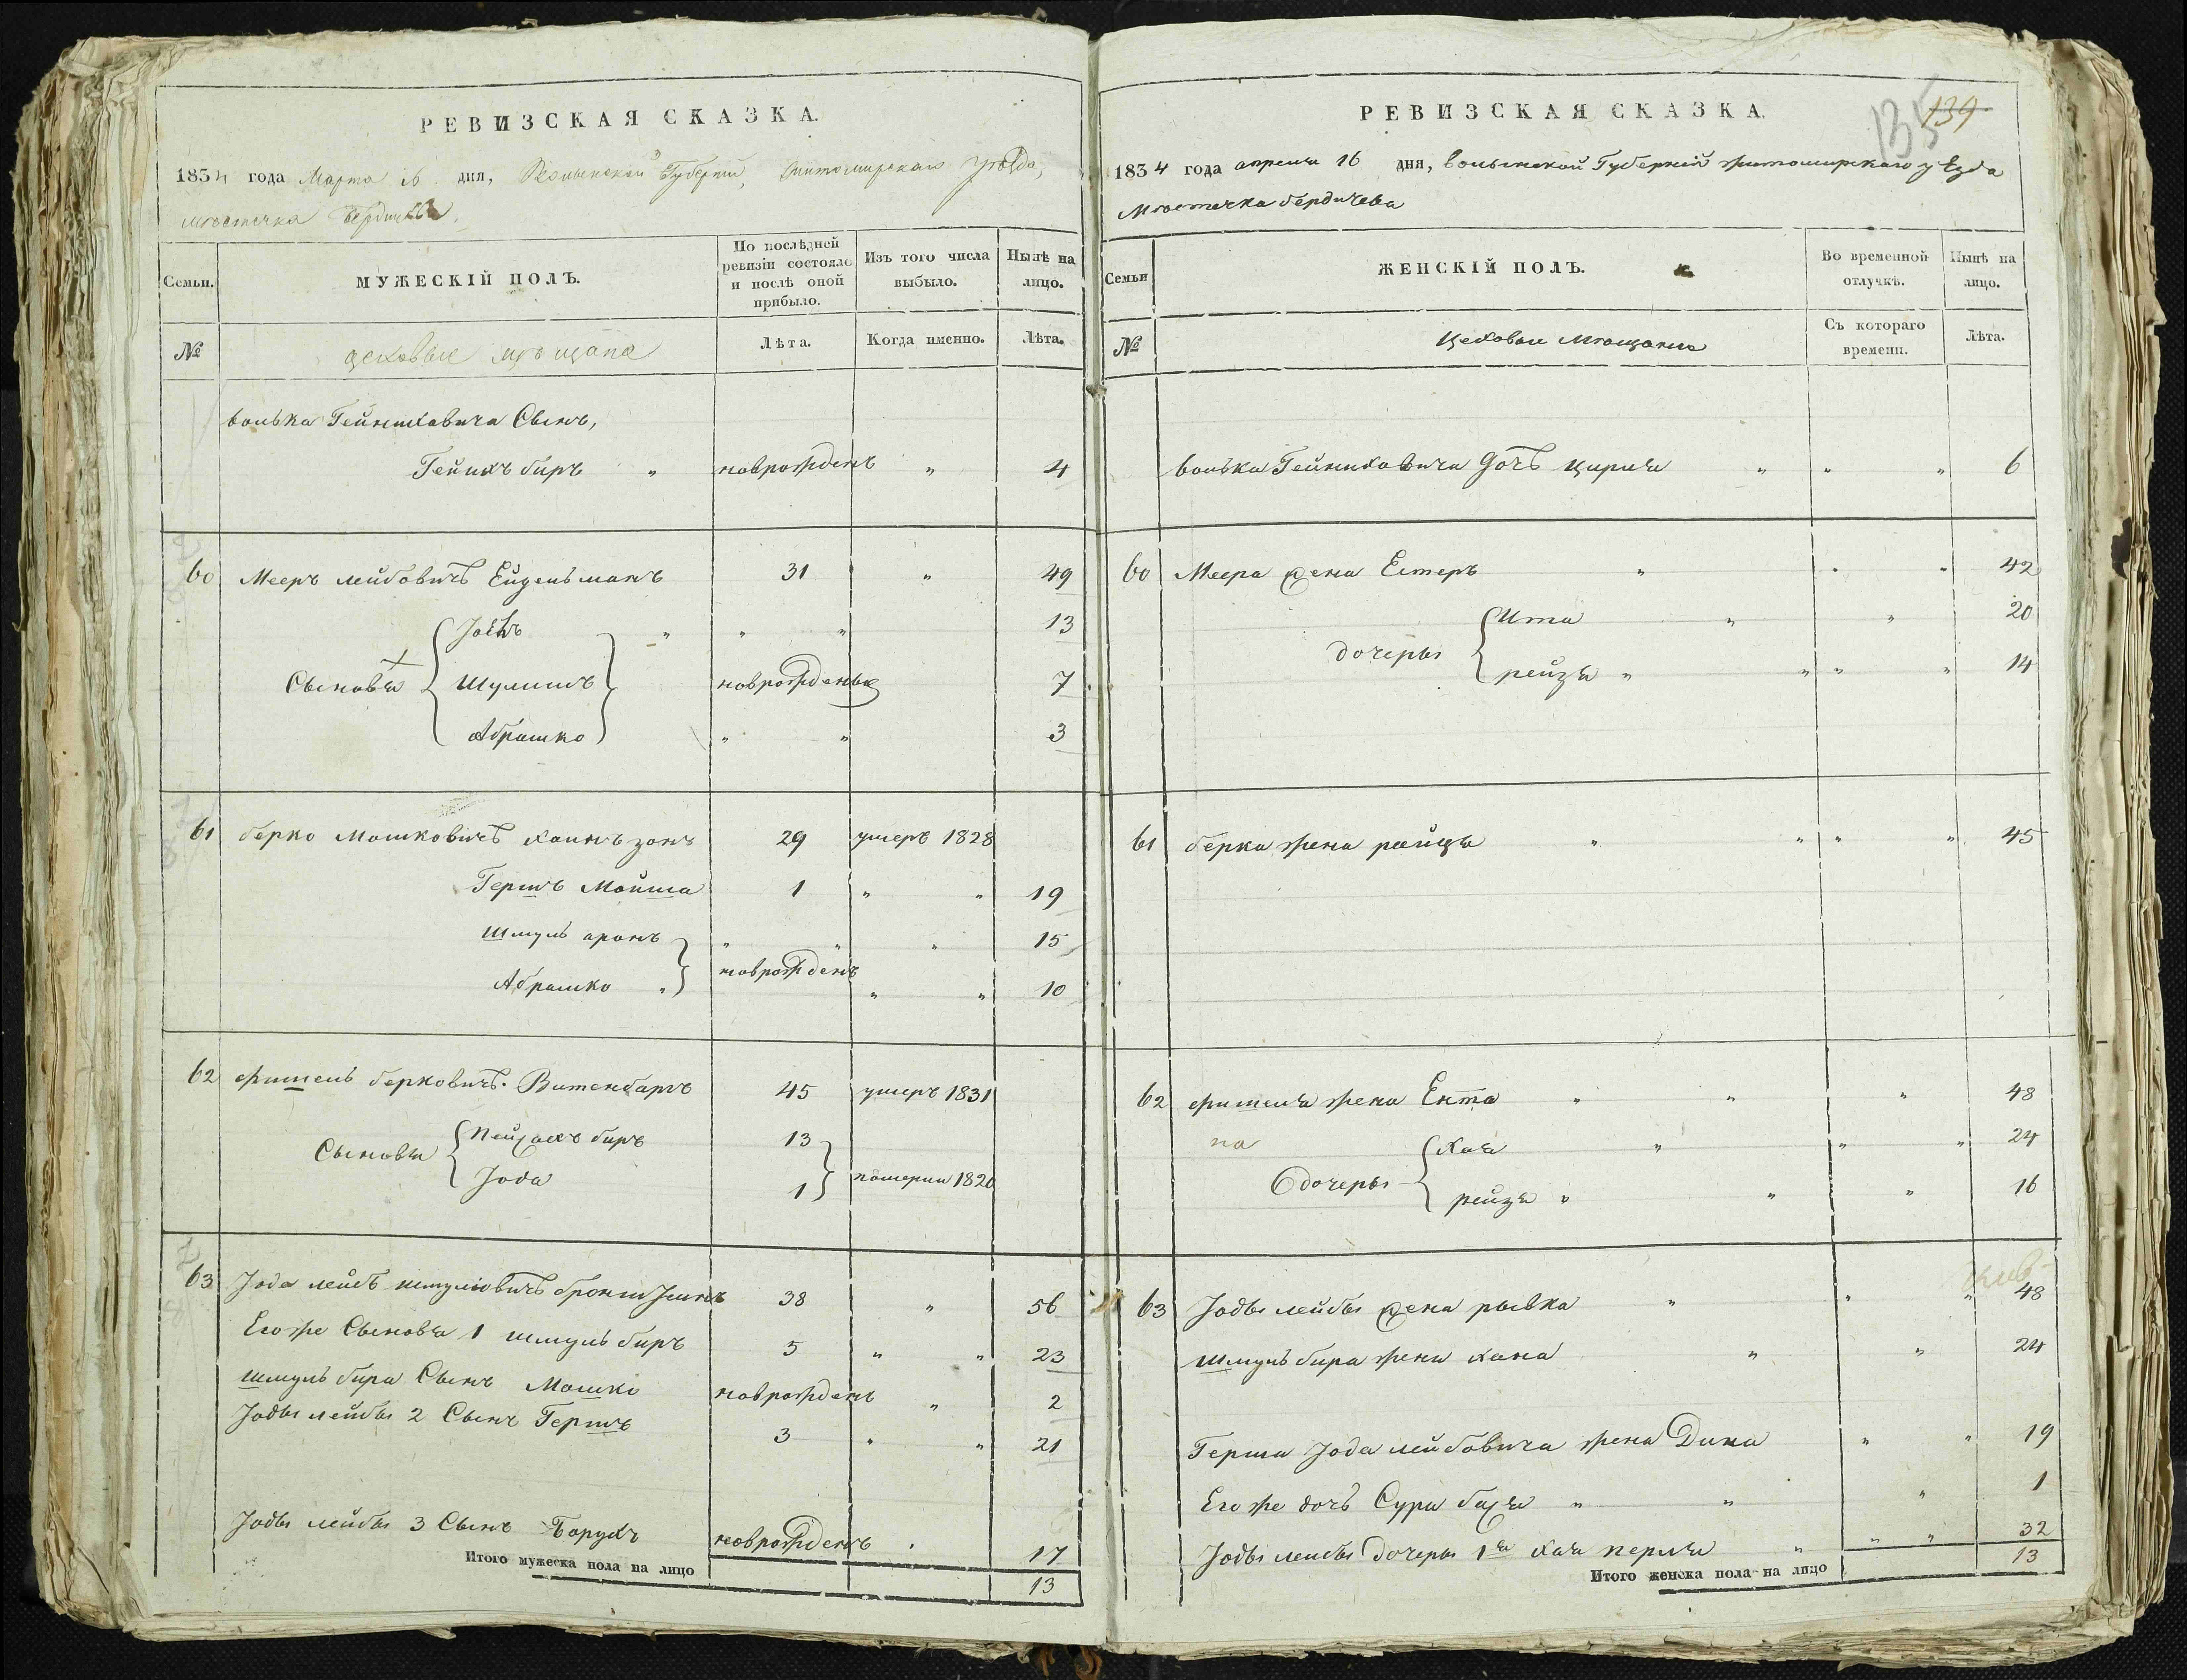 РЕВИЗСКАЯ СКАЗКА.
1834 года Марта 16 дня, Волынской Губерніи, Житомирскаго уѣзда,
мѣстечка Бердичева
Семьи.
МУЖЕСКІЙ ПОЛЪ.
По послѣдней ревизіи состояло и послѣ оной прибыло.
Изъ того числа выбыло.
Нынѣ на лицо.
№
цеховые мѣщана
Лѣта.
Когда именно.
Лѣта.
волька Гейниховича Сынъ,
Гейнихъ биръ " новрожденъ " 4
60 Мееръ лейбовичъ Ейдельманъ 31 " 49
" " " 13
Сыновя Шулимъ новрожденые 7
Абрашко " " 3
61 берко Мошковичъ 29 умеръ 1828
Гершъ Мойша 1 " " 19
Шмуль аронъ " " " 15
Абрашко " новрожденъ " " 10
62 фишель берковичъ. Витенбаргъ 45 умеръ 1831
Сыновя Пейсахъ биръ 13
Іода 1 померли 1820
63 Іода лейбъ шмуліовичъ 38 " 56
Егоже Сыновя 1 шмуль биръ 5 " " 23
шмуль бира Сынъ Мошко новрожденъ " 2
Іоды лейбы 2 Сынъ Гершъ 3 " " 21
Іоды лейбы 3 Сынъ Борухъ новрожденъ . 17
Итого мужеска пола на лицо 13
135
139
РЕВИЗСКАЯ СКАЗКА.
1834 года апреля 16 дня, волынской Губерніи житомирскаго уезда
Мѣстечка бердичева
Семьи
ЖЕНСКІЙ ПОЛЪ.
Во временной отлучкѣ.
Нынѣ на лицо.
№
Цеховыи Мѣщаны
Съ котораго времени.
Лѣта.
волька Гейниховича дочъ цирля " " " 6
60 Меера жена Естеръ " " " 42
дочеры Ита " " 20
рейзя " " " " 14
61 берка жена райця " " " " 45
62 фишеля жена Ента " " " 48
на
дочеры Хая " " " 24
рейзя " " " 16
63 Іоды лейбы жена рывка " " " 48
шмуль бира жена хана " " 24
Герша Іода лейбовича жена Дина " " 19
Егоже дочъ Сура бася " " " 1
Іоды лейбы дочеры 1я хая перля " " " 32
Итого женска пола на лицо 13